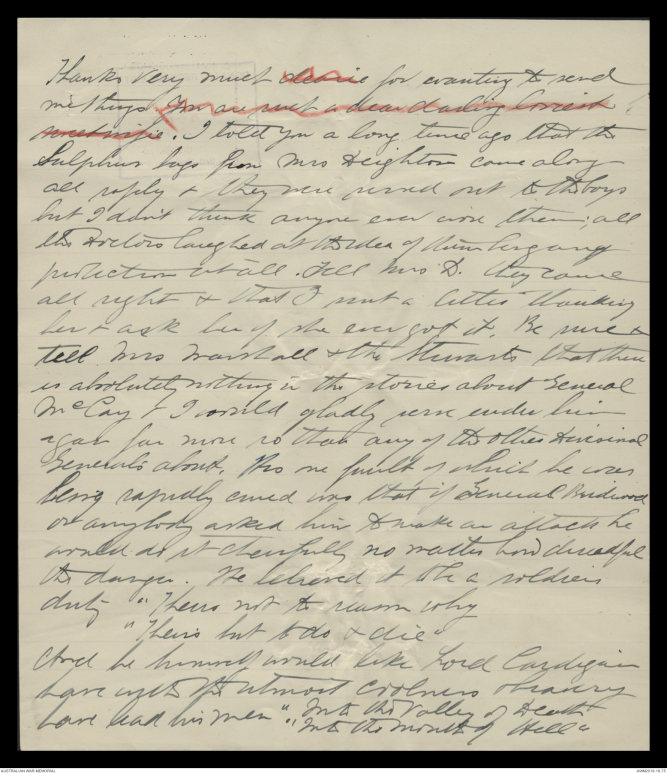 Thanks very much dearie for wanting to send
me things. I'm sure just a dear darling
I told you a long time ago that the
Sulphur bags from Mrs Deighton came along
all safely & they were issued out to the boys
but I don't think anyone ever wore them; all
the Doctors laughed at the idea of them being any
protection at all. Tell Mrs D. they came
all right & that I sent a letter thanking
her & ask her if she ever got it. Be sure &
tell Mrs Marshall & the Stewarts that there
is absolutely nothing in the stories about General
McCay & I would gladly serve under him
again far more so than any of the other Divisional
Generals about. His one fault of which he was
being rapidly cured was that if General Birdwood
or anybody asked him to make an attack he
would do it cheerfully no matter how dreadful
the danger. He believed it to be a soldiers
duty "Theirs not to reason why
"Theirs but to do & die"
And he himself would like Lord Cardigan
have with the utmost coolness & bravery
have lead his men "Into the Valley of Death"
"Into the mouth of Hell"
AUSTRALIAN WAR MEMORIAL